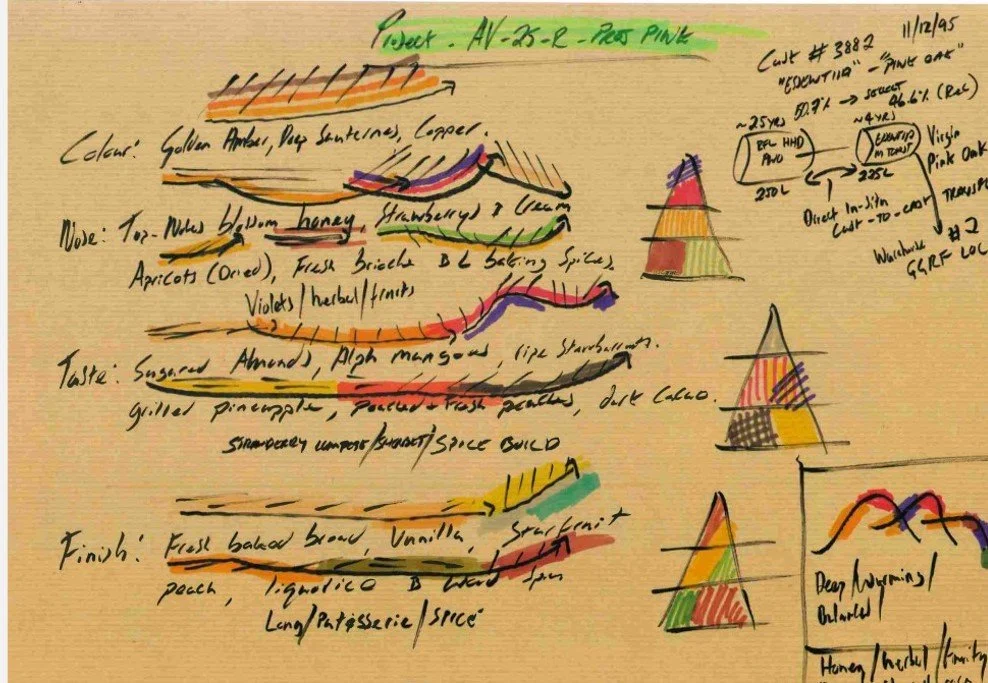 Project - AV-25-R - PROJ PINK
11/12/95
Cask # 3882
"PINK OAK"
50.7% → 46.6% (Rec)
~25YRS
~4YRS
RFL HHD
250L
225L
Virgin
Pink Oak
Direct In-situ
Cask-TO-CASK
Warehouse #2
GGRF LOC
Colour: Golden Amber, Deep Sauternes, Copper.
Nose: Top-Notes blossom honey, Strawberrys & Cream
Apricots (Dried), Fresh brioche & baking Spices
Violets/herbal/fruits
Taste: Sugared Almonds, Alph mangoes, ripe Starburnts.
grilled pineapple, poached + fresh peaches, dark Cacao.
STRAWBERRY COMPOTE/SHERBET/SPICE BUILD
Finish: Fresh baked bread, Vanilla, Starfruit
peach, liquorice & Spice
Long/Patisserie/Spice
Deep/Warming/
Balanced/
Honey/herbal/fruity